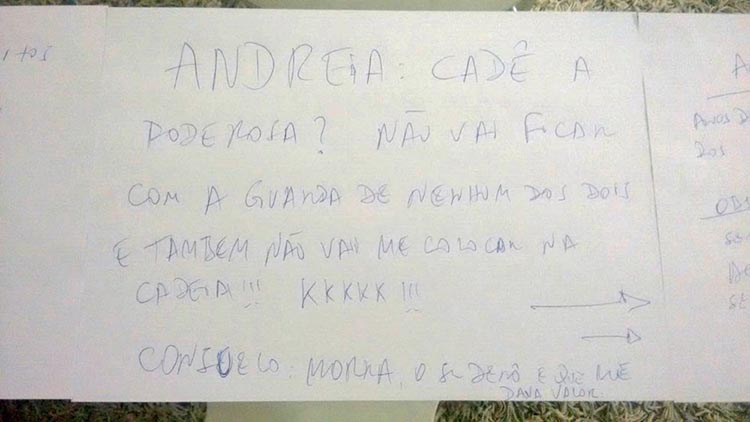 ANDREIA: CADÊ A
PODEROSA? NÃO VAI FICAR
COM A GUARDA DE NENHUM DOS DOIS
E TAMBEM NÃO VAI ME COLOCAR NA
CADEIA!!! KKKKK!!!
CONSUELO: MORRA, O E QUE ME
DAVA VALOR.
ANOS D
DOS
OBS